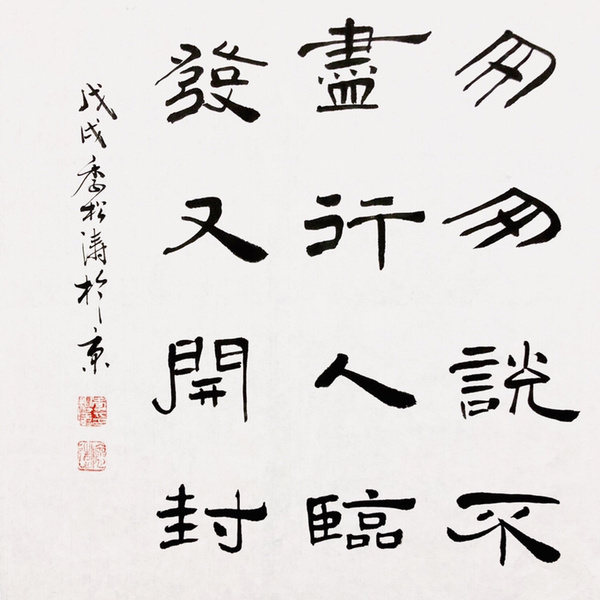 匆匆説不
盡行人臨
發又開封
戊戌季松濤於京